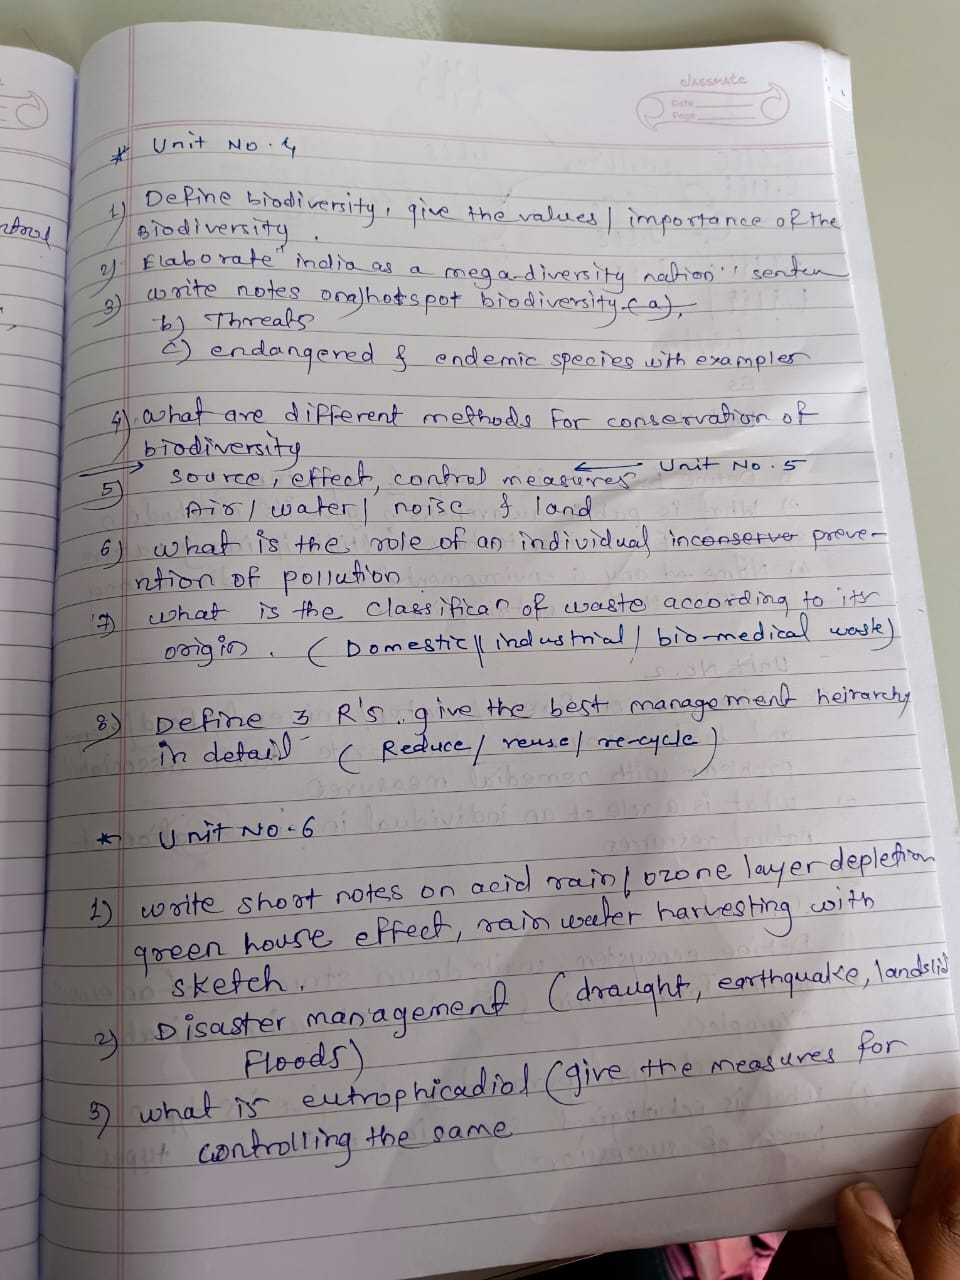 classmate
Date
Page
* Unit No. 4
1) Define biodiversity, give the values / importance of the
Biodiversity.
2) Elaborate "india as a mega-diversity nation" senten
3) write notes on a) hotspot biodiversity (a),
b) Threats
c) endangered & endemic species with examples
4) What are different methods for conservation of
biodiversity
Unit No. 5
5) Source, effect, control measures
Air / water / noise & land
6) what is the role of an individual inconserve preve-
ntion of pollution
7) what is the classifican of waste according to its
origin. (Domestic // industrial / bio-medical waste)
8) Define 3 R's. give the best management heirarchy
in detail (Reduce / reuse / re-cycle)
* Unit No-6
1) write short notes on acid rain / ozone layer depletion
green house effect, rain water harvesting with
sketch.
2) Disaster management (draught, earthquake, landslid
Floods)
3) what is eutrophicadiol (give the measures for
controlling the same